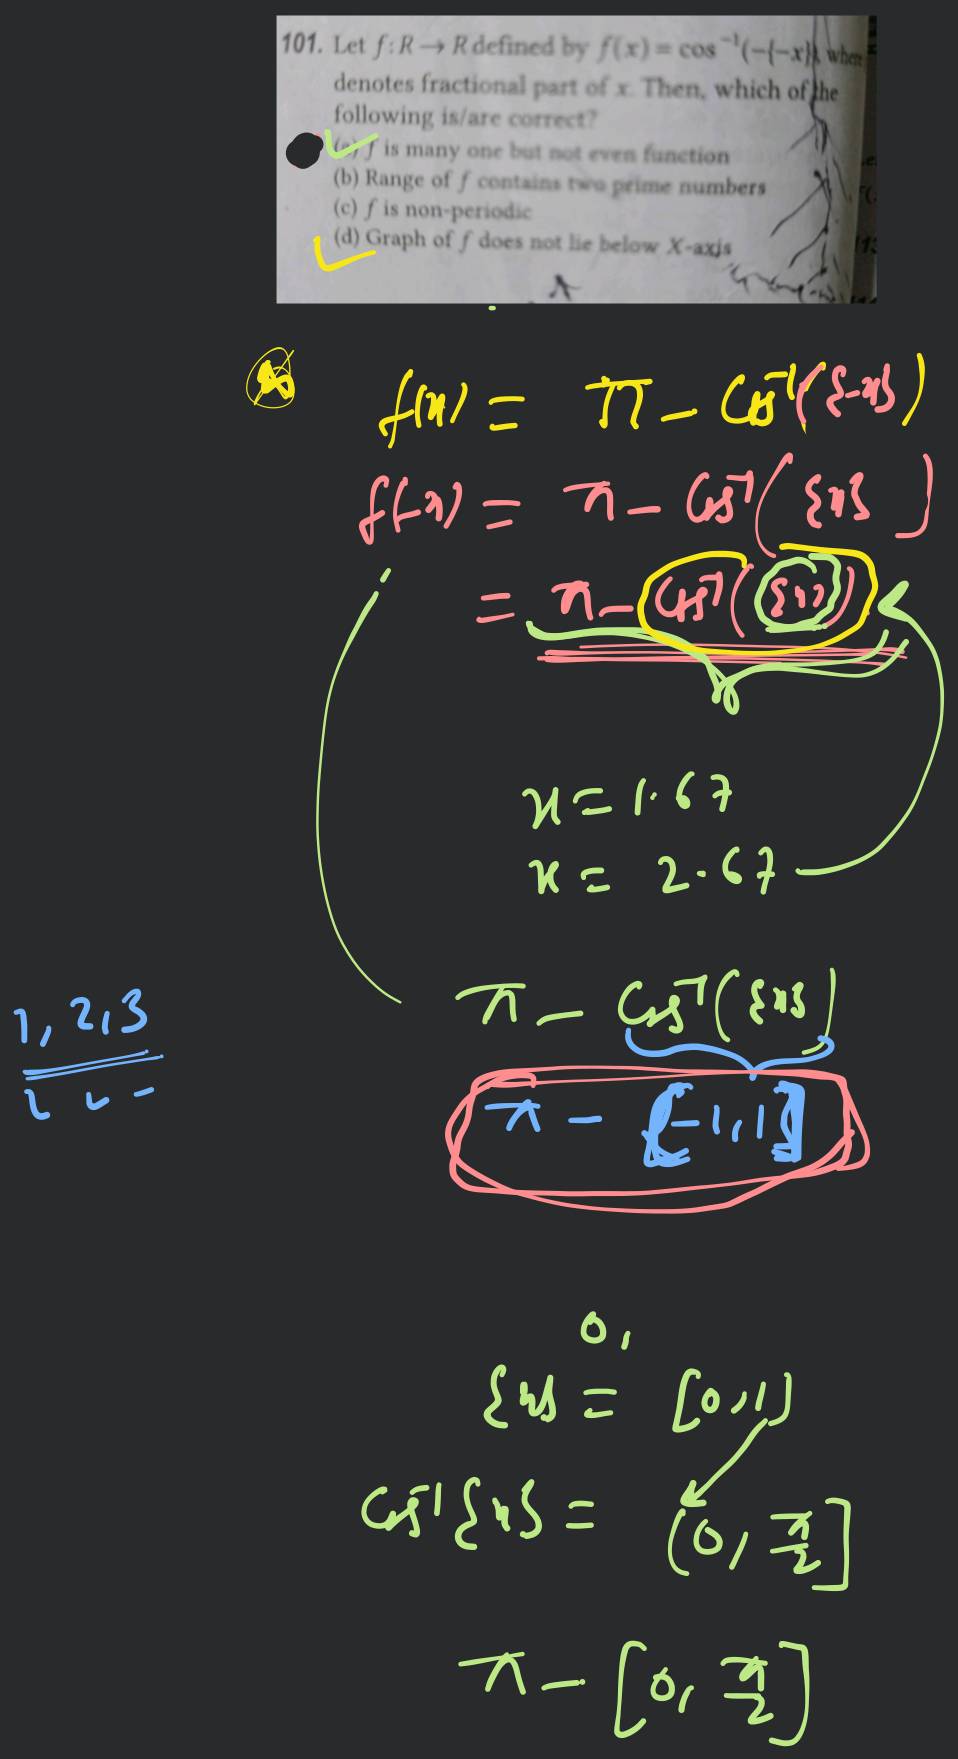 101. Let f : R → R defined by f(x) = cos⁻¹(-{-x}), where
denotes fractional part of x. Then, which of the
following is/are correct?
(a) f is many one but not even function
(b) Range of f contains two prime numbers
(c) f is non-periodic
(d) Graph of f does not lie below X-axis
f(x) = π - Cos⁻¹({-x})
f(-x) = π - Cos⁻¹({x})
= π - Cos⁻¹({x})
x = 1.67
x = 2.67
π - Cos⁻¹({x})
1, 2, 3
π - [-1, 1]
0,
{x} = [0, 1)
Cos⁻¹{x} = (0, π/2]
π - [0, π/2]